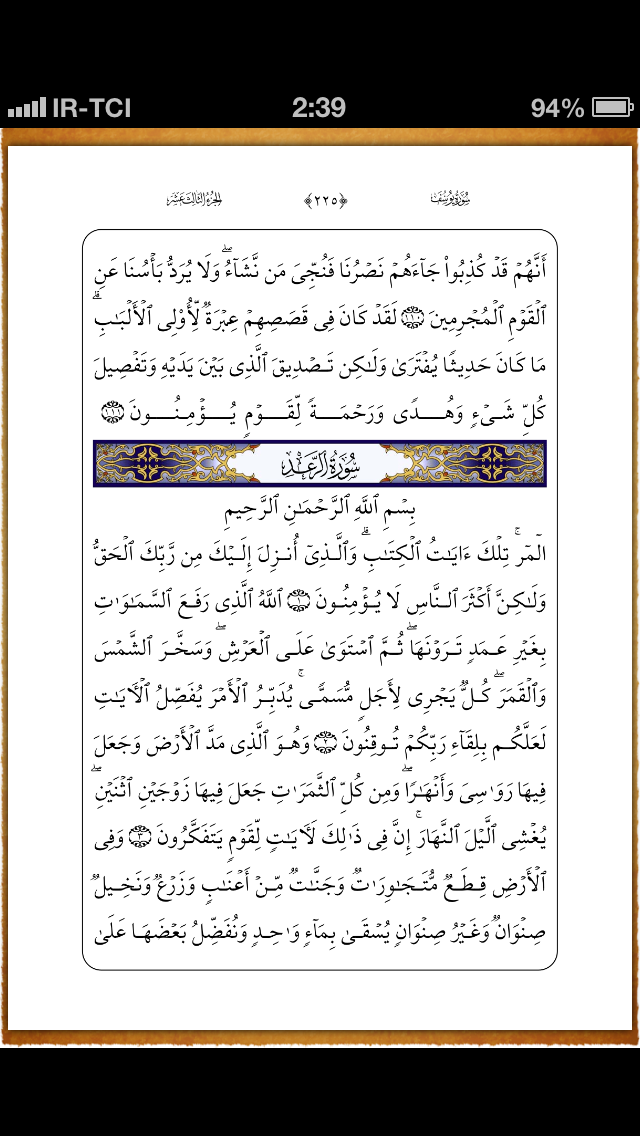 IR-TCI 2:39 94%
سُورَةُ يُوسُفَ ﴿٢٢٥﴾ الجُزءُ الثَّالِثَ عَشَرَ
أَنَّهُمْ قَدْ كُذِبُوا۟ جَآءَهُمْ نَصْرُنَا فَنُجِّىَ مَن نَّشَآءُ ۖ وَلَا يُرَدُّ بَأْسُنَا عَنِ
ٱلْقَوْمِ ٱلْمُجْرِمِينَ ١١٠ لَقَدْ كَانَ فِى قَصَصِهِمْ عِبْرَةٌ لِّأُو۟لِى ٱلْأَلْبَـٰبِ ۗ
مَا كَانَ حَدِيثًا يُفْتَرَىٰ وَلَـٰكِن تَصْدِيقَ ٱلَّذِى بَيْنَ يَدَيْهِ وَتَفْصِيلَ
كُلِّ شَىْءٍ وَهُدًى وَرَحْمَةً لِّقَوْمٍ يُؤْمِنُونَ ١١١
سُورَةُ الرَّعْدِ
بِسْمِ ٱللَّهِ ٱلرَّحْمَـٰنِ ٱلرَّحِيمِ
الٓمٓر ۚ تِلْكَ ءَايَـٰتُ ٱلْكِتَـٰبِ ۗ وَٱلَّذِىٓ أُنزِلَ إِلَيْكَ مِن رَّبِّكَ ٱلْحَقُّ
وَلَـٰكِنَّ أَكْثَرَ ٱلنَّاسِ لَا يُؤْمِنُونَ ١ ٱللَّهُ ٱلَّذِى رَفَعَ ٱلسَّمَـٰوَٰتِ
بِغَيْرِ عَمَدٍ تَرَوْنَهَا ۖ ثُمَّ ٱسْتَوَىٰ عَلَى ٱلْعَرْشِ ۖ وَسَخَّرَ ٱلشَّمْسَ
وَٱلْقَمَرَ ۖ كُلٌّ يَجْرِى لِأَجَلٍ مُّسَمًّى ۚ يُدَبِّرُ ٱلْأَمْرَ يُفَصِّلُ ٱلْـَٔايَـٰتِ
لَعَلَّكُم بِلِقَآءِ رَبِّكُمْ تُوقِنُونَ ٢ وَهُوَ ٱلَّذِى مَدَّ ٱلْأَرْضَ وَجَعَلَ
فِيهَا رَوَٰسِىَ وَأَنْهَـٰرًا ۖ وَمِن كُلِّ ٱلثَّمَرَٰتِ جَعَلَ فِيهَا زَوْجَيْنِ ٱثْنَيْنِ ۖ
يُغْشِى ٱلَّيْلَ ٱلنَّهَارَ ۚ إِنَّ فِى ذَٰلِكَ لَـَٔايَـٰتٍ لِّقَوْمٍ يَتَفَكَّرُونَ ٣ وَفِى
ٱلْأَرْضِ قِطَعٌ مُّتَجَـٰوِرَٰتٌ وَجَنَّـٰتٌ مِّنْ أَعْنَـٰبٍ وَزَرْعٌ وَنَخِيلٌ
صِنْوَانٌ وَغَيْرُ صِنْوَانٍ يُسْقَىٰ بِمَآءٍ وَٰحِدٍ وَنُفَضِّلُ بَعْضَهَا عَلَىٰ